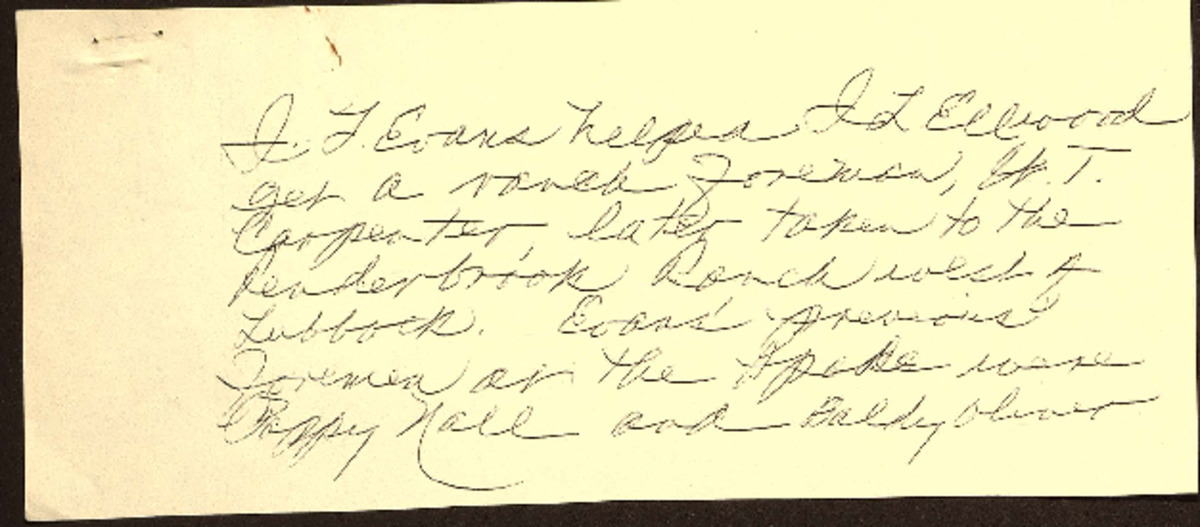 J. F. Evans helped I L Ellwood
get a ranch foreman, W. T.
Carpenter, later taken to the
Renderbrook Ranch west of
Lubbock. Evans' previous
Foremen at the Spade were
Pappy Nall and Baldy Oliver